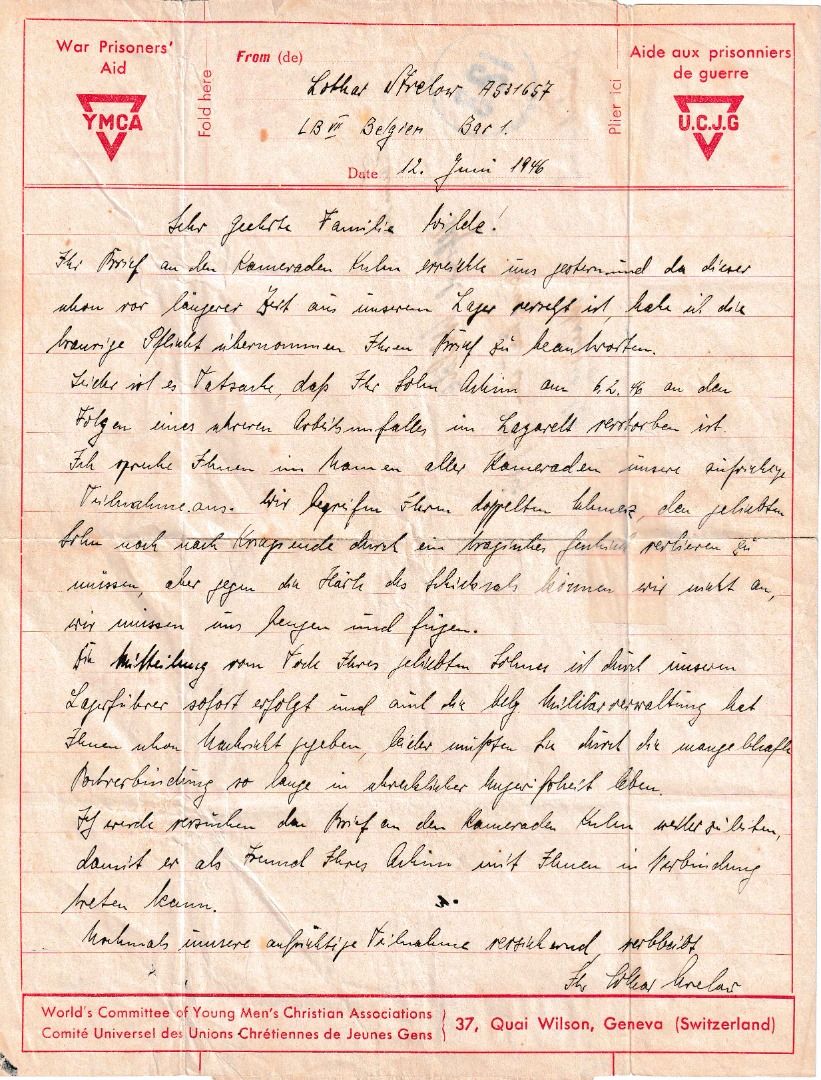 War Prisoners' Aid
YMCA
Fold here
From (de)
Lothar Strelow A531657
LB VII Belgien Bar 1.
Date 12. Juni 1946
Plier ici
Aide aux prisonniers de guerre
U.C.J.G
Sehr geehrte Familie Wilde!
Ihr Brief an den Kameraden Kuhn erreichte uns gestern und da dieser
schon vor längerer Zeit aus unserem Lager versetzt ist, habe ich die
traurige Pflicht übernommen Ihren Brief zu beantworten.
Leider ist es Tatsache, daß Ihr Sohn Achim am 6.2.46 an den
Folgen eines schweren Arbeitsunfalles im Lazarett verstorben ist.
Ich spreche Ihnen im Namen aller Kameraden unsere aufrichtige
Teilnahme aus. Wir begreifen Ihren doppelten Schmerz, den geliebten
Sohn noch nach Kriegsende durch ein tragisches Geschick verlieren zu
müssen, aber gegen die Härte des Schicksals können wir nicht an,
wir müssen uns beugen und fügen.
Die Mitteilung vom Tode Ihres geliebten Sohnes ist durch unseren
Lagerführer sofort erfolgt und auch die belg. Militärverwaltung hat
Ihnen schon Nachricht gegeben, leider mußten Sie durch die mangelhafte
Postverbindung so lange in schrecklicher Ungewißheit leben.
Ich werde versuchen den Brief an den Kameraden Kuhn weiterzuleiten,
damit er als Freund Ihres Achim mit Ihnen in Verbindung
treten kann.
Nochmals unsere aufrichtige Teilnahme versichernd, verbleibt
Ihr Lothar Strelow
World's Committee of Young Men's Christian Associations
Comité Universel des Unions Chrétiennes de Jeunes Gens
37, Quai Wilson, Geneva (Switzerland)